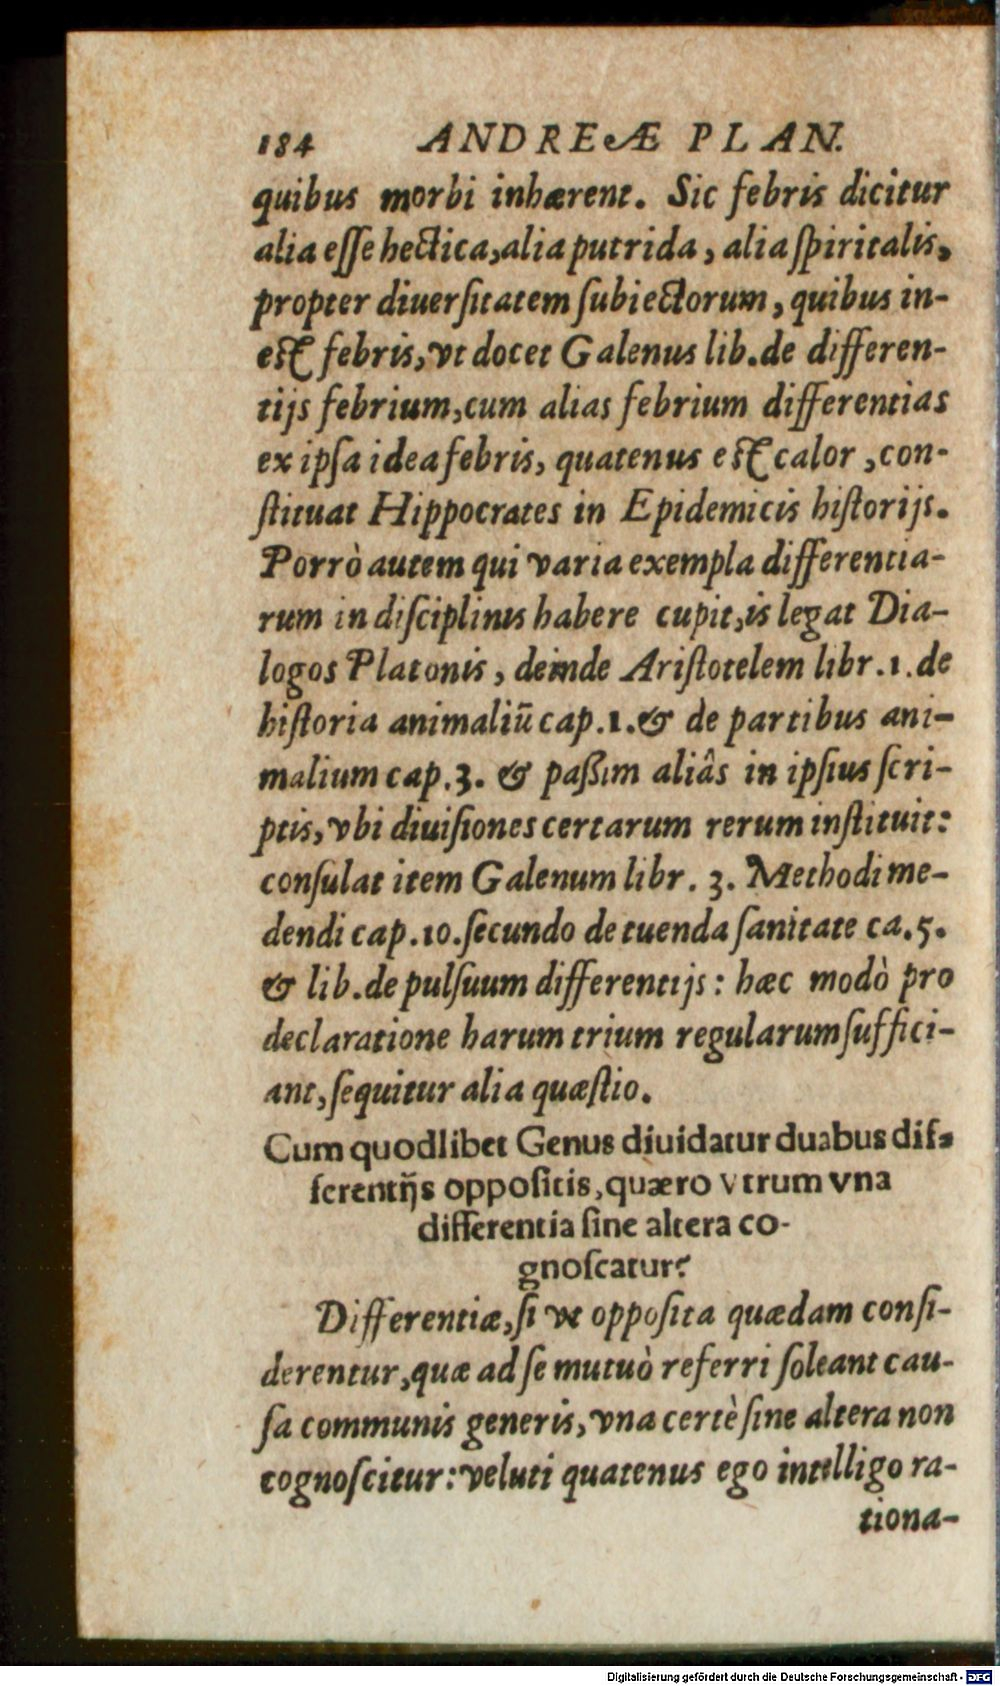 184 ANDREÆ PLAN.
quibus morbi inhærent. Sic febris dicitur
alia eſſe hectica, alia putrida, alia ſpiritalis,
propter diuerſitatem ſubiectorum, quibus in-
eſt febris, vt docet Galenus lib. de differen-
tijs febrium, cum alias febrium differentias
ex ipſa idea febris, quatenus eſt calor, con-
ſtituat Hippocrates in Epidemicis hiſtorijs.
Porrò autem qui varia exempla differentia-
rum in diſciplinis habere cupit, is legat Dia-
logos Platonis, deinde Ariſtotelem libr. 1. de
hiſtoria animaliū cap. 1. & de partibus ani-
malium cap. 3. & paßim aliâs in ipſius ſcri-
ptis, vbi diuiſiones certarum rerum inſtituit:
conſulat item Galenum libr. 3. Methodi me-
dendi cap. 10. ſecundo de tuenda ſanitate ca. 5.
& lib. de pulſuum differentijs: hæc modò pro
declaratione harum trium regularum ſuffici-
ant, ſequitur alia quæſtio.
Cum quodlibet Genus diuidatur duabus dif-
ferentijs oppoſitis, quæro vtrum vna
differentia ſine altera co-
gnoſcatur?
Differentiæ, ſi vt oppoſita quædam conſi-
derentur, quæ ad ſe mutuò referri ſoleant cau-
ſa communis generis, vna certè ſine altera non
cognoſcitur: veluti quatenus ego intelligo ra-
tiona-
Digitalisierung gefördert durch die Deutsche Forschungsgemeinschaft - DFG